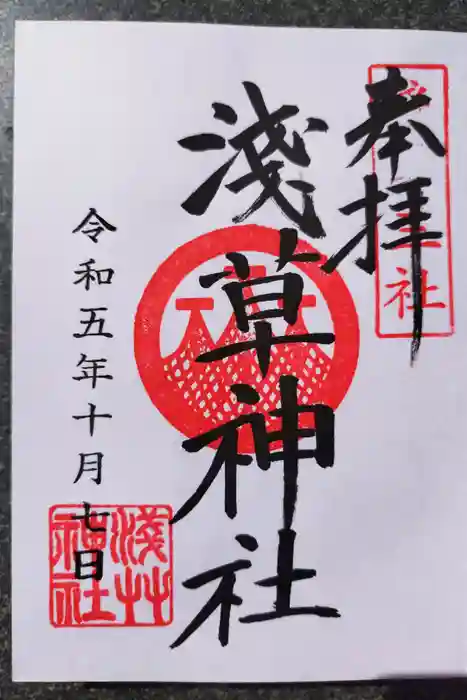 奉拝
淺草神社
令和五年十月七日
社
淺艸
神社